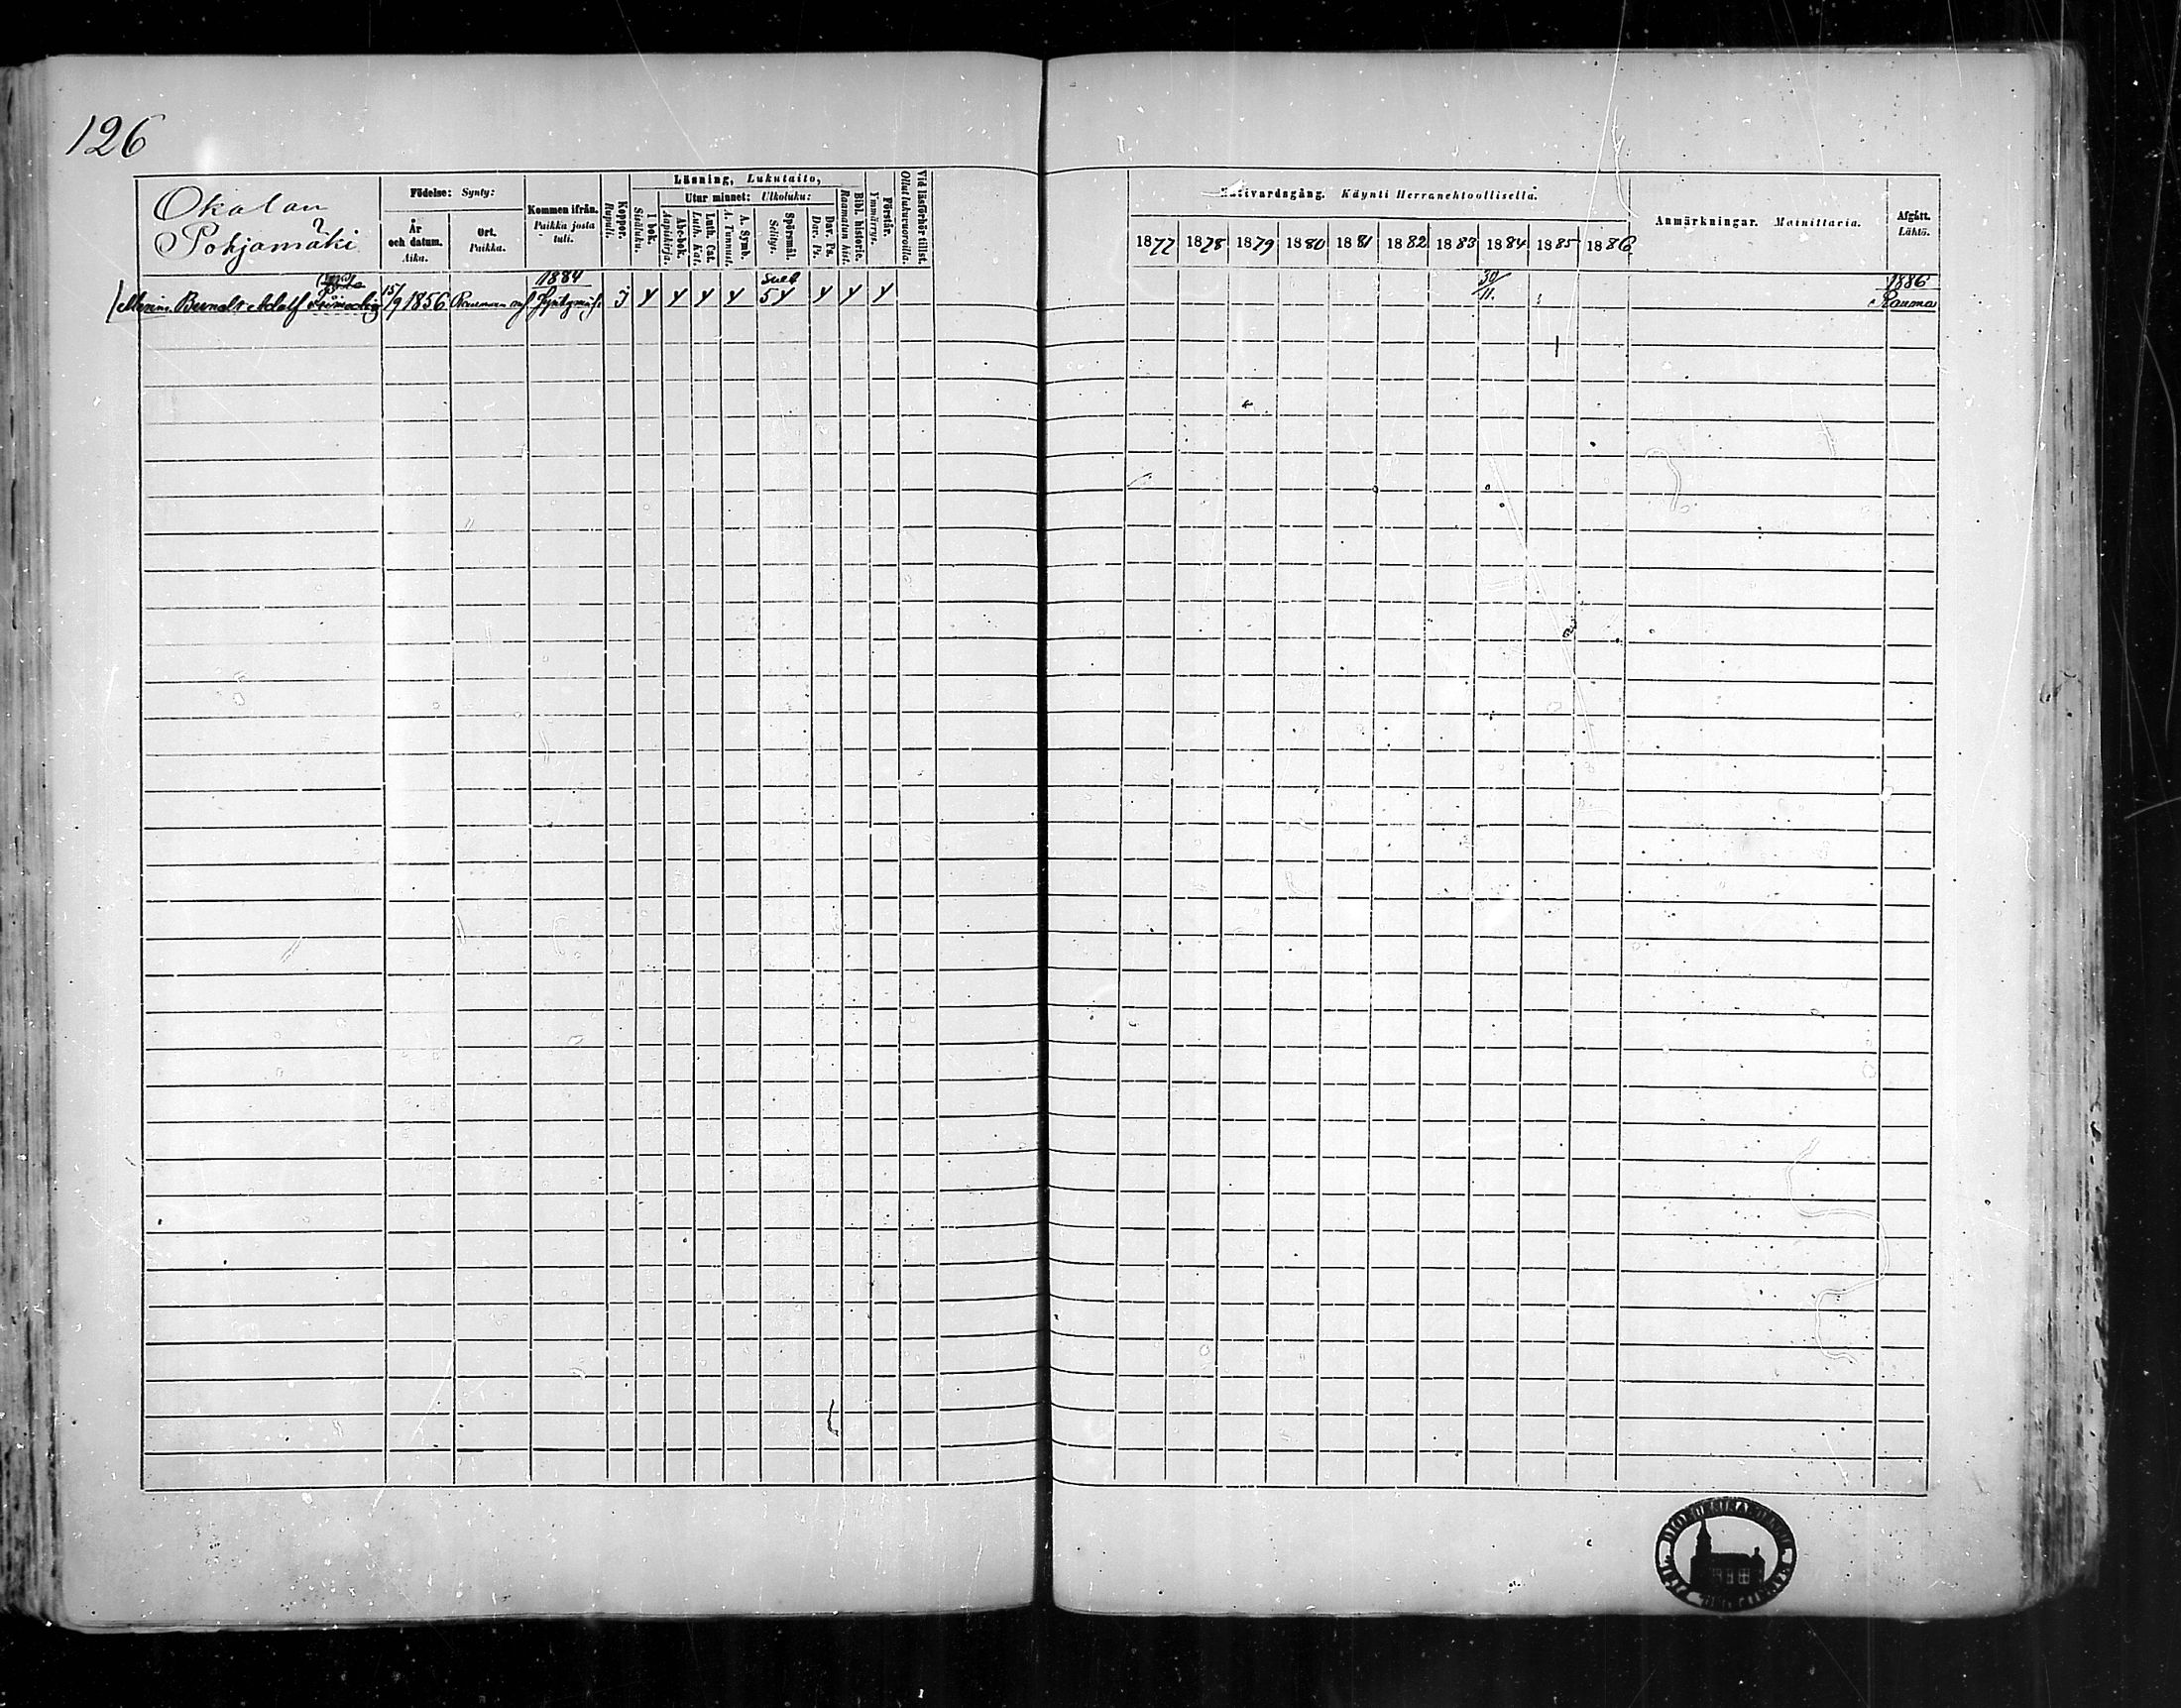 126
Okalan
Pohjamäki
Födelse: Synty:
År och datum. Aika.
Ort. Paikka.
Kommen ifrån. Paikka josta tuli.
Koppor. Rupuli.
Läsning, Lukutaito,
I bok. Sisäluku.
Utur minnet: Ulkoluku:
Abc-bok. Aapiskirja.
Luth. Cat. Luth. Kat.
A. Symb. A. Tunnust.
Spörsmål. Selitys.
Dav. Ps. Dav. Ps.
Bibl. historie. Raamatun hist.
Förstår. Ymmärrys.
Vid läsförhör tillst. Ollut lukuvuoroilla.
Nattvardsgång. Käynti Herranehtoollisella.
1877 1878 1879 1880 1881 1882 1883 1884 1885 1886
Anmärkningar. Muistuttavia.
Afgått. Lähtö.
Adolf 15/9 1856 1884 30/11. 1886 Rauma